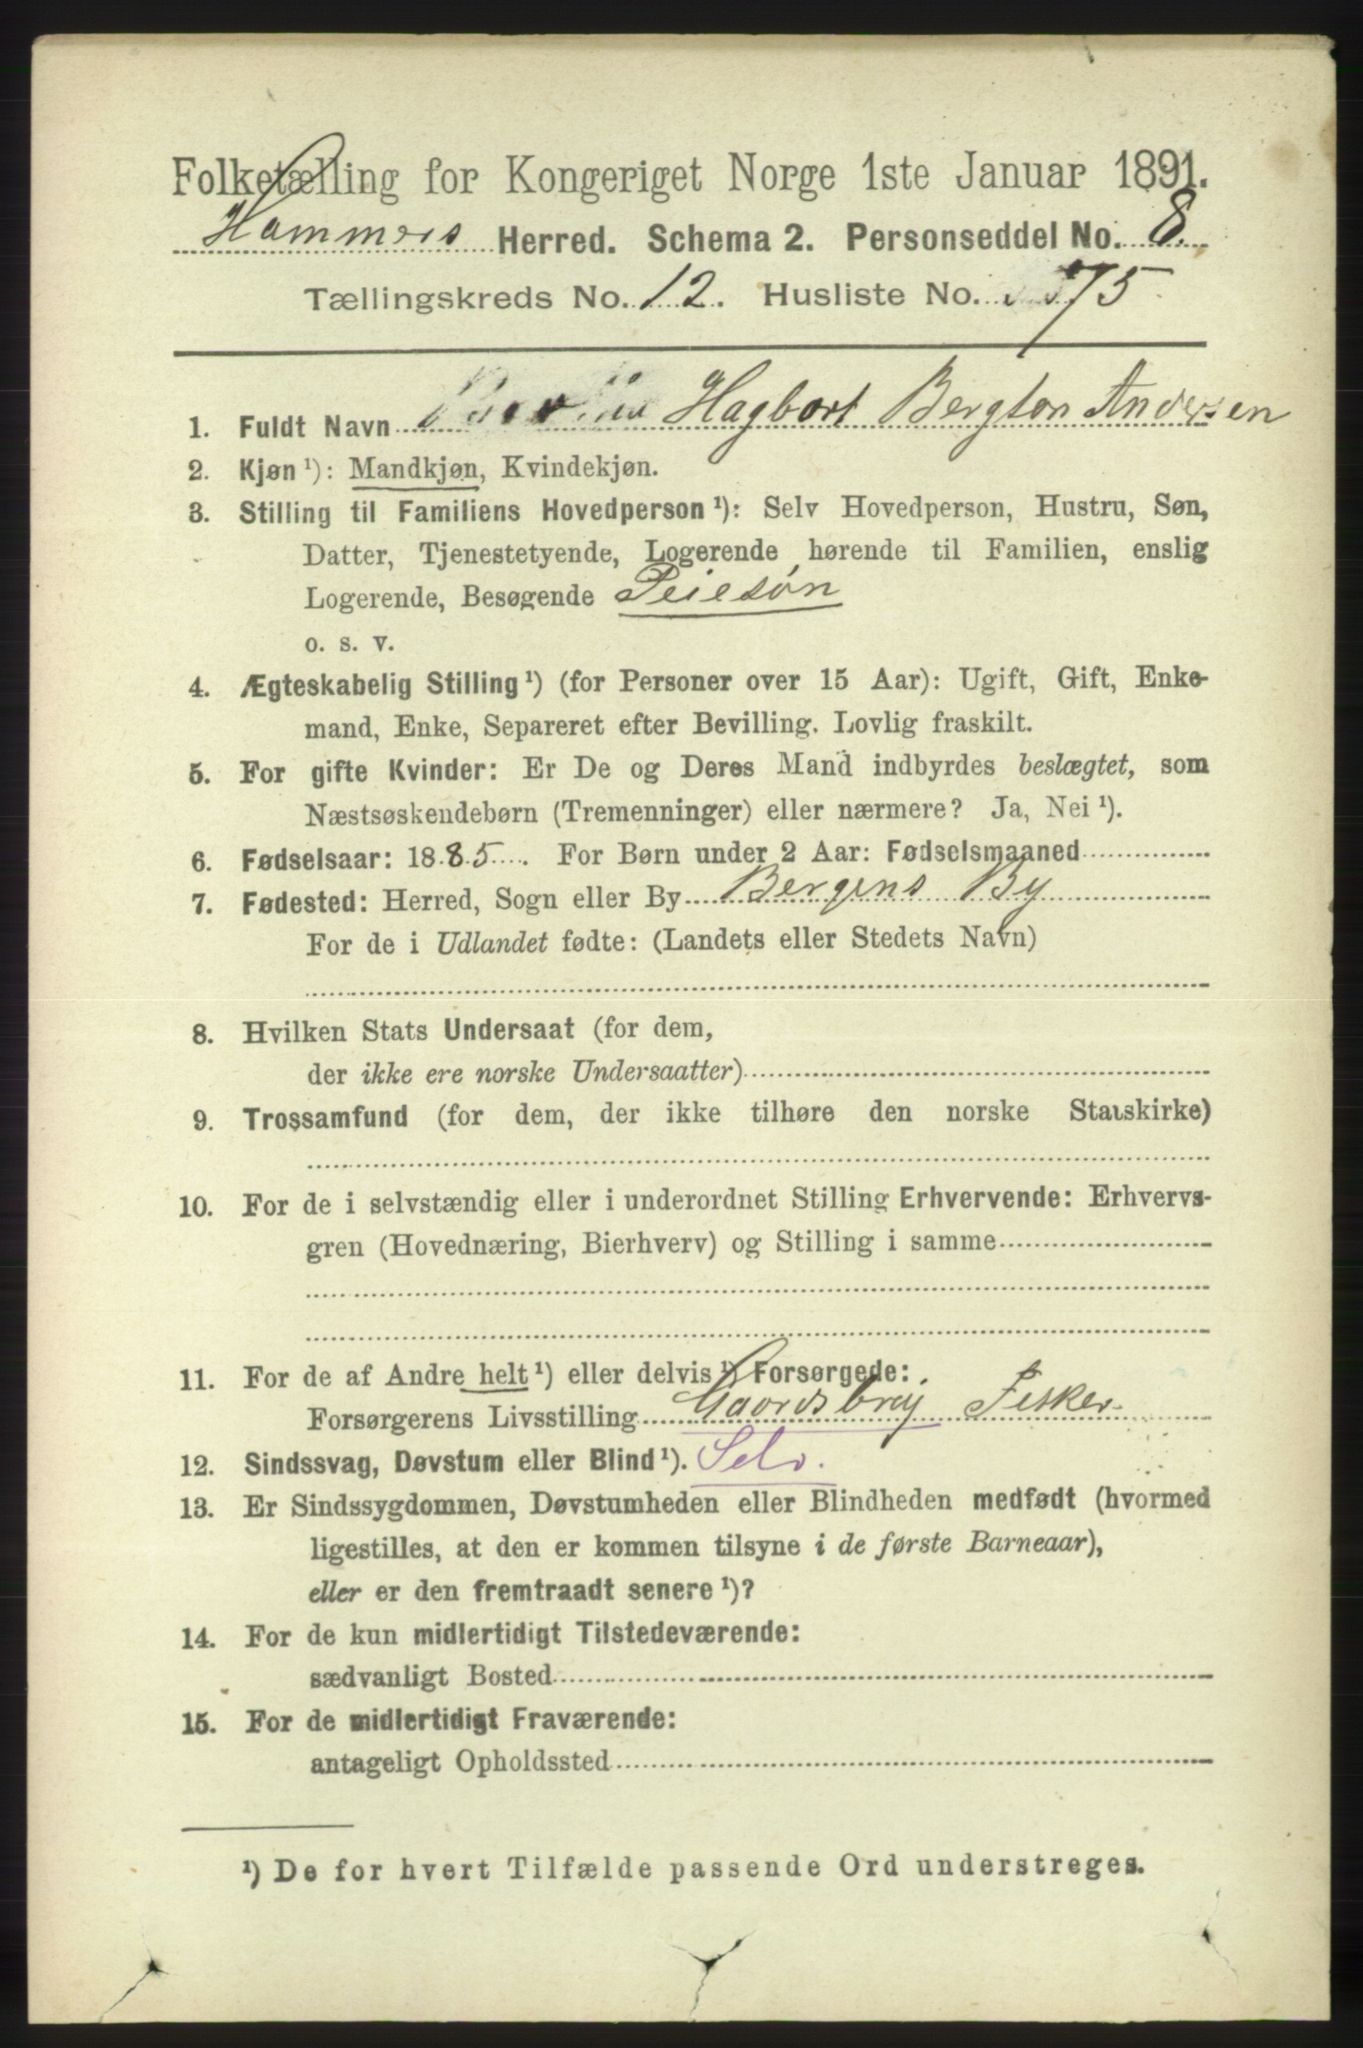 Folketælling for Kongeriget Norge 1ste Januar 1891.
Hammers Herred. Schema 2. Personseddel No. 8.
Tællingskreds No. 12. Husliste No. 75
1. Fuldt Navn Hagbart Bergton Andersen
2. Kjøn ¹): Mandkjøn, Kvindekjøn.
3. Stilling til Familiens Hovedperson ¹): Selv Hovedperson, Hustru, Søn,
Datter, Tjenestetyende, Logerende hørende til Familien, enslig
Logerende, Besøgende Pleiesøn
o. s. v.
4. Ægteskabelig Stilling ¹) (for Personer over 15 Aar): Ugift, Gift, Enke-
mand, Enke, Separeret efter Bevilling. Lovlig fraskilt.
5. For gifte Kvinder: Er De og Deres Mand indbyrdes beslægtet, som
Næstsøskendebørn (Tremenninger) eller nærmere? Ja, Nei ¹).
6. Fødselsaar: 1885. For Børn under 2 Aar: Fødselsmaaned
7. Fødested: Herred, Sogn eller By Bergens By
For de i Udlandet fødte: (Landets eller Stedets Navn)
8. Hvilken Stats Undersaat (for dem,
der ikke ere norske Undersaatter)
9. Trossamfund (for dem, der ikke tilhøre den norske Statskirke)
10. For de i selvstændig eller i underordnet Stilling Erhvervende: Erhvervs-
gren (Hovednæring, Bierhverv) og Stilling i samme
11. For de af Andre helt ¹) eller delvis ¹) Forsørgede:
Forsørgerens Livsstilling Gaardsbrug Fisker
12. Sindssvag, Døvstum eller Blind ¹). Selv.
13. Er Sindssygdommen, Døvstumheden eller Blindheden medfødt (hvormed
ligestilles, at den er kommen tilsyne i de første Barneaar),
eller er den fremtraadt senere ¹)?
14. For de kun midlertidigt Tilstedeværende:
sædvanligt Bosted
15. For de midlertidigt Fraværende:
antageligt Opholdssted
¹) De for hvert Tilfælde passende Ord understreges.